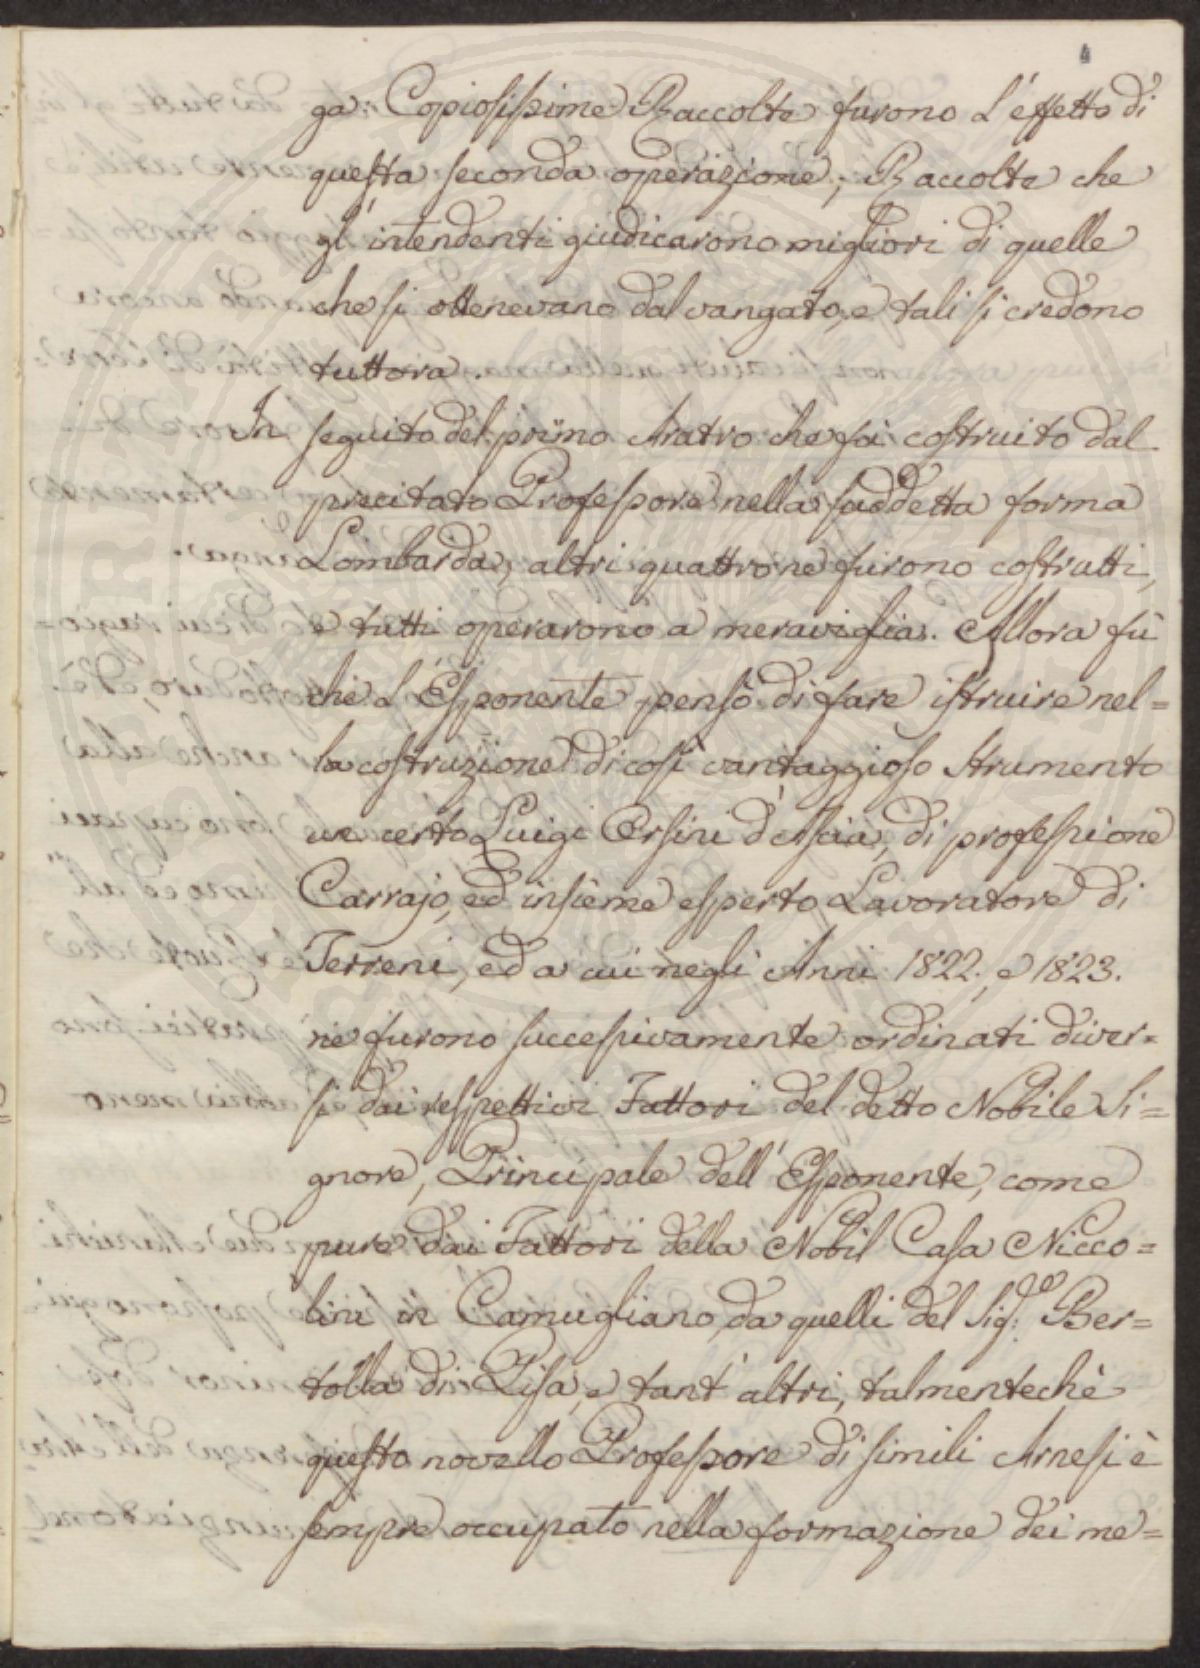 4
ga: Copiosissime Raccolte furono l'effetto di
questa seconda operazione; Raccolte che
gl'intendenti giudicarono migliori di quelle
che si ottenevano dal vangato, e tali si credono
tuttora.
In seguito del primo Aratro che fù costruito dal
precitato Professore nella suddetta forma
Lombarda, altri quattro ne furono costrutti,
e tutti operarono a meraviglia. Allora fù
che l'Esponente pensò di fare istruire nel=
la costruzione di così vantaggioso Strumento
un certo Luigi Orsini d'Ascia, di professione
Carrajo, ed insieme esperto Lavoratore di
Terreni, ed a cui negli Anni 1822, e 1823.
ne furono successivamente ordinati diver=
si dai respettivi Fattori del detto Nobile Si=
gnore, Principale dell'Esponente, come
pure dai Fattori della Nobil Casa Nicco=
lini in Camugliano, da quelli del Sig:re Ber=
tolla di Pisa, e tant'altri, talmentechè
questo novello Professore di simili Arnesi è
sempre occupato nella formazione dei me=